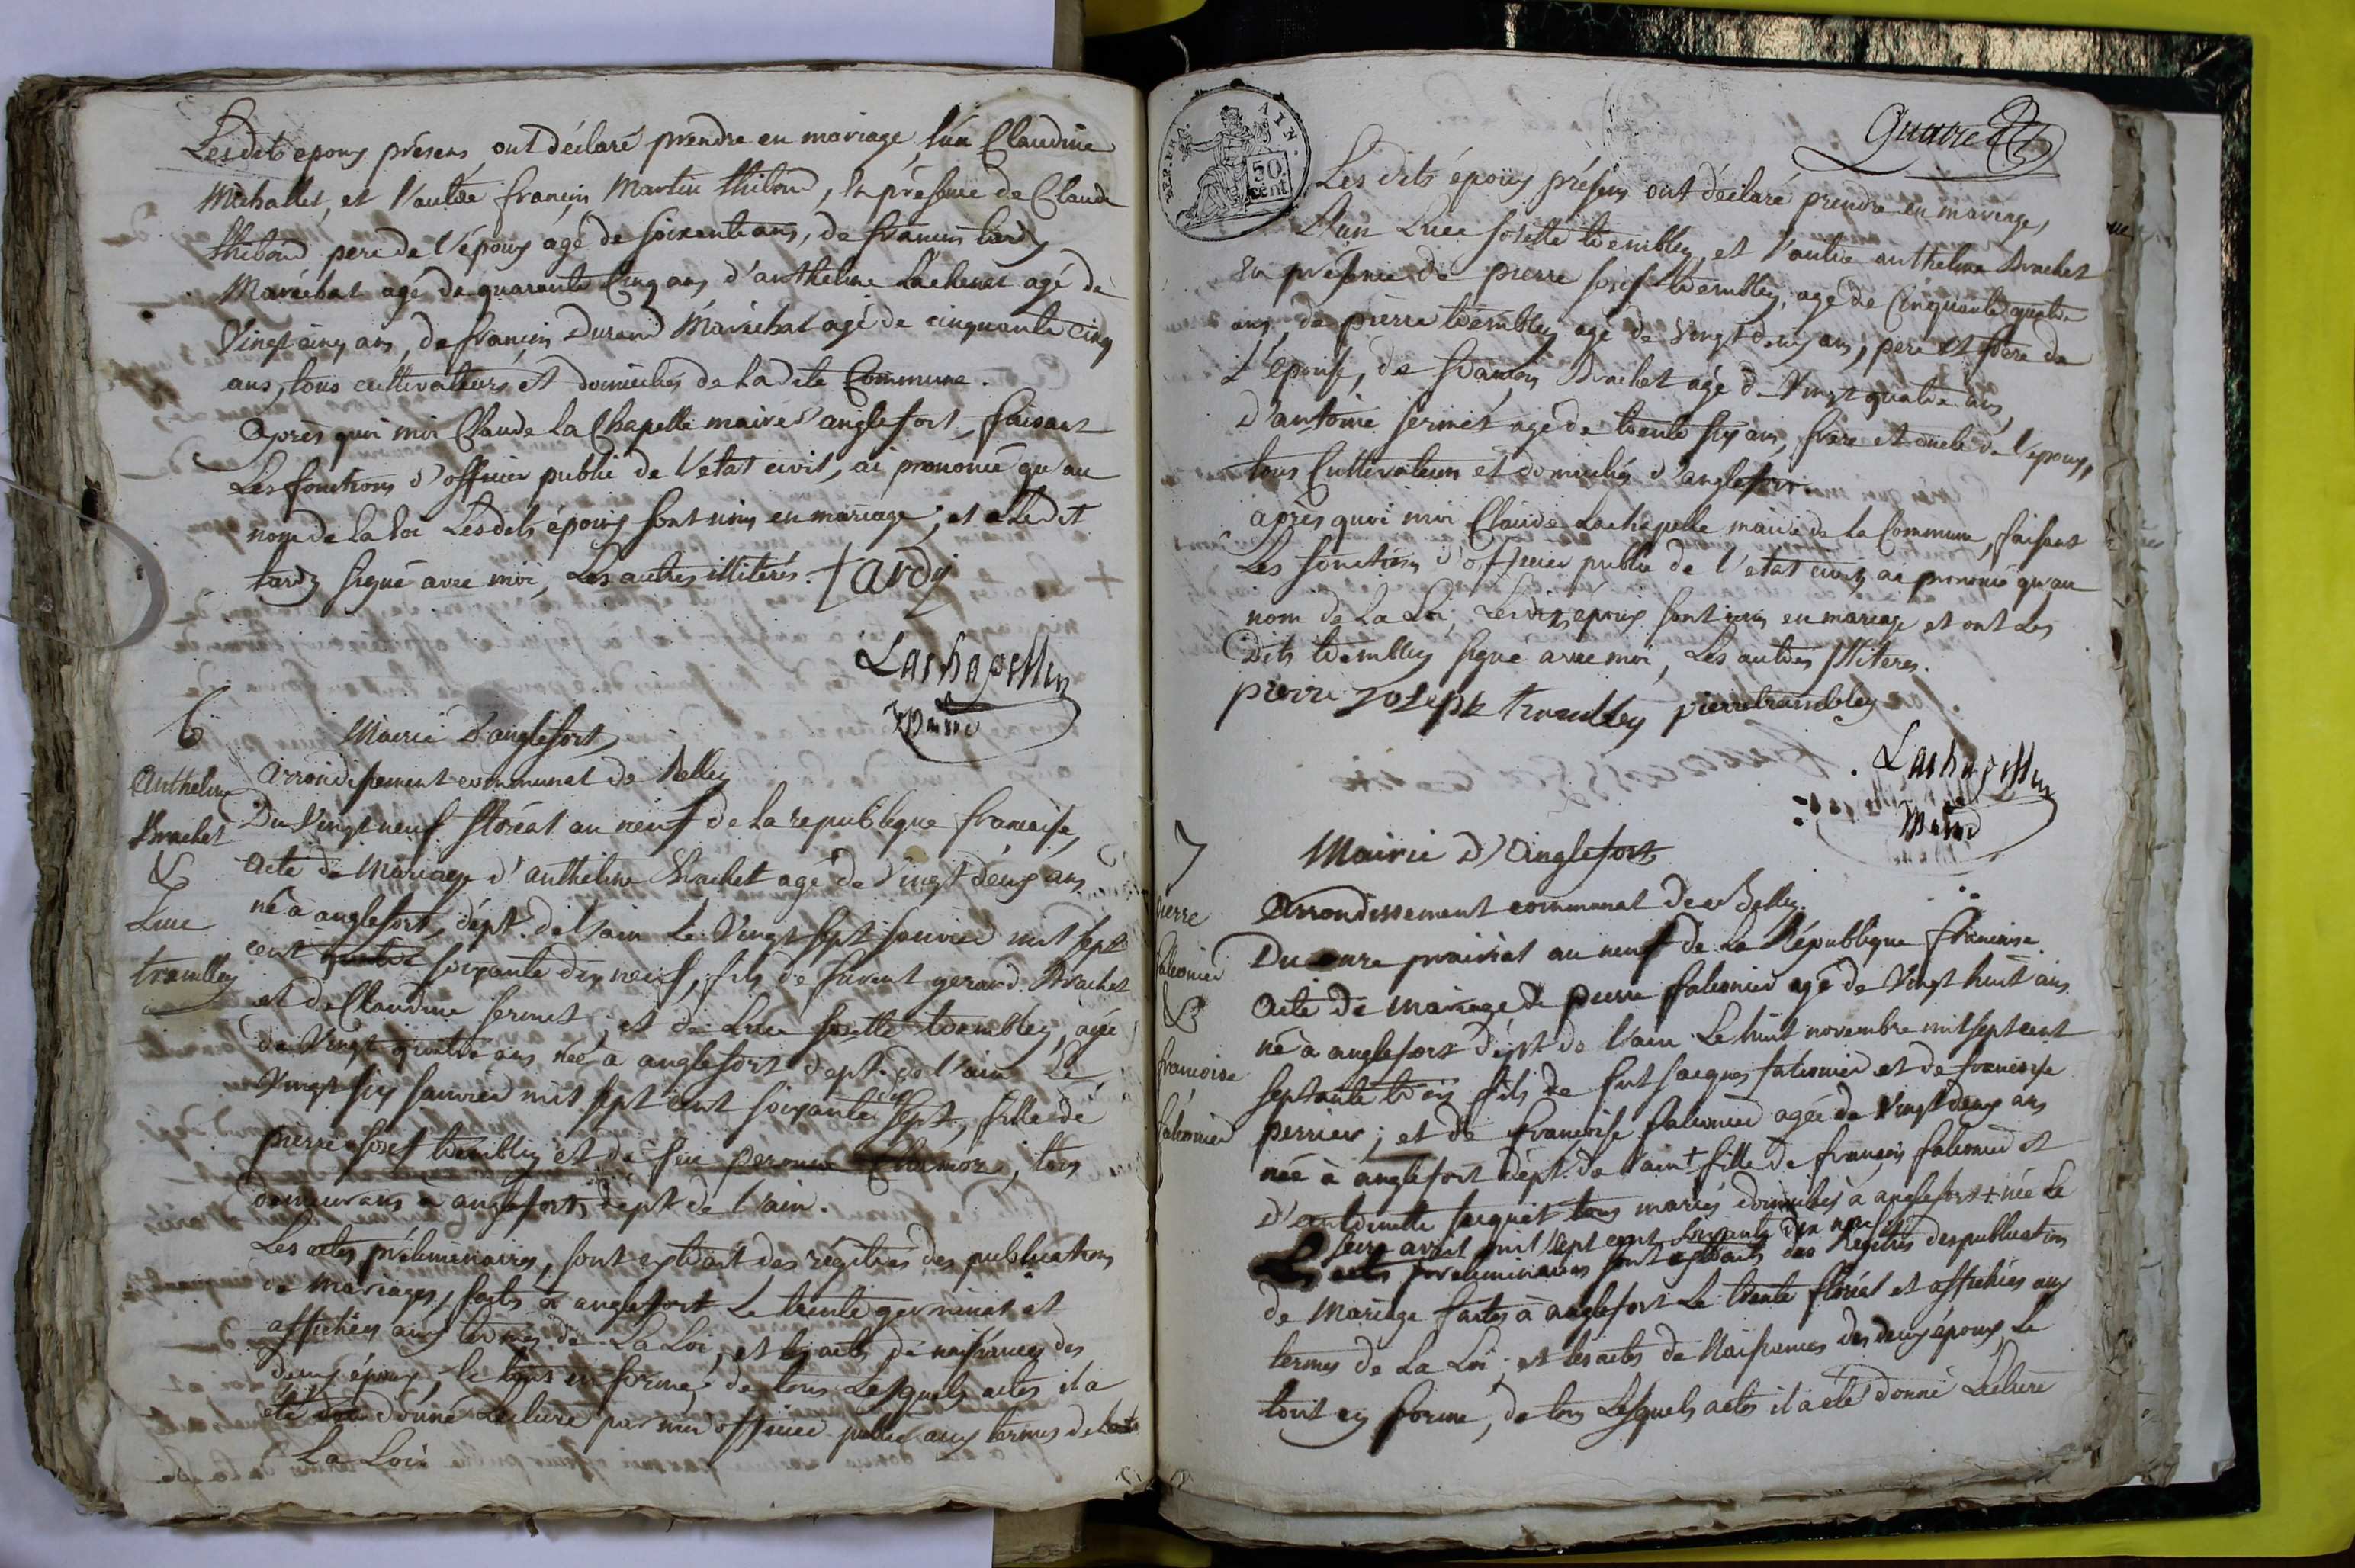 Lesdits epoux présens, ont déclaré prendre en mariage, l'un Claudine
Michallet, et l'autre françois Martin thiboud, En présence de Claude
thiboud pere de l'époux agé de soixante ans, de francois tardy
Maréchal agé de quarante Cinq ans, d'anthelme Lachenal agé de
Vingt cinq ans, de françois Durand Maréchal agé de cinquante cinq
ans, tous cultivateurs et domiciliés de Ladite Commune.
Après quoi moi Claude La Chapelle maire d'anglefort, faisant
Les fonctions d'officier public de l'etat civil, ai prononcé qu'au
nom de la Loi Lesdits époux sont unis en mariage, et a Ledit
tardy signé avec moi, Les autres illiterés. tardy
Lachapelle
Maire
6
Mairie d'anglefort,
Arrondissement communal de Belley
Anthelme
Brachet
&
Luce
trembley
Du Vingt neuf floréal an neuf de la republique francaise,
Acte de Mariage d'anthelme Brachet agé de Vingt deux ans
né à anglefort, dépt. de l'ain Le Vingt sept janvier mil sept
cent soixante dix neuf, fils de furent gerard Brachet
et de Claudine sermet; et de Luce josette trembley, agée
de Vingt quatre ans née a anglefort dept. de l'ain Le
Vingt six janvier mil sept cent soixante dix sept, fille de
pierre josef trembley et de feue peronne Chamoz; tous
demeurans à anglefort, dépt. de l'ain.
Les actes préliminaires, sont extrait des régitres des publications
de Mariages, faites à anglefort Le trente germinal et
affichées aux termes de La Loi, et les actes de naissances des
deux époux, le tout en forme; de tous Lesquels actes il a
été donné Lecture par moi officier public aux termes de
La Loi.
Quatre
REP. FRA.
50
cent
Les dits époux présens ont déclaré prendre en mariage,
L'un Luce josette trembley, et l'autre anthelme Brachet
En présence de pierre josef trembley, agé de Cinquante quatre
ans, de pierre trembley agé de Vingt deux ans, pere et frere de
L'epouse, de francois Brachet agé de Vingt quatre ans,
d'antoine sermet agé de trente six ans, frere et oncle de l'epoux,
tous Cultivateurs et domiciliés d'anglefort.
après quoi moi Claude Lachapelle maire de la Commune, faisant
Les fonctions d'officier public de l'etat civil, ai prononcé qu'au
nom de La Loi, Lesdits epoux sont unis en mariage et ont Les
Dits trembley signé avec moi, Les autres illiteres.
pierre Joseph trembley pierre trambley
Lachapelle
Maire
7
Mairie d'Anglefort
Arrondissement communal de Belley.
pierre
falconier
&
francoise
falconier
Du onze prairial an neuf de La République francaise.
Acte de Mariage de pierre falconier agé de Vingt huit ans
né à anglefort dépt. de l'ain Le huit novembre mil sept cent
septante trois fils de fut jacques falconier et de francoise
perrier; et de françoise falconier agée de Vingt deux ans
née à anglefort dépt. de l'ain + fille de françois falconier et
d'antoinette jacquet tous mariés domiciliés a anglefort + née Le
seize avril mil sept cent soixante dix neuf
Les actes preliminaires sont extraits des Regitres des publication
de Mariage faites à anglefort Le trente floréal et affichées aux
termes de La Loi, et les actes de Naissances des deux époux, Le
tout en forme, de tous Lesquels actes il a été donné Lecture